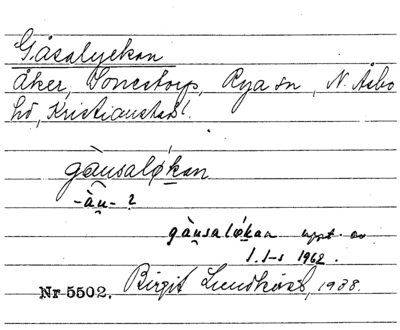 Gåsalyckan
Åker, Sonestorp, Rya sn, N. Åsbo
hd, Kristianstads l.
gàu̯saløkan
-àu̯- ?
gàu̯saløkan uppt. av
1.1-s 1962.
Nr 5502. Birgit Lundkvist, 1938.